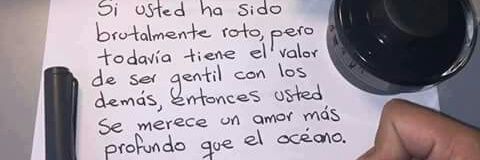 Si usted ha sido
brutalmente roto, pero
todavía tiene el valor
de ser gentil con los
demás, entonces usted
se merece un amor más
profundo que el océano.